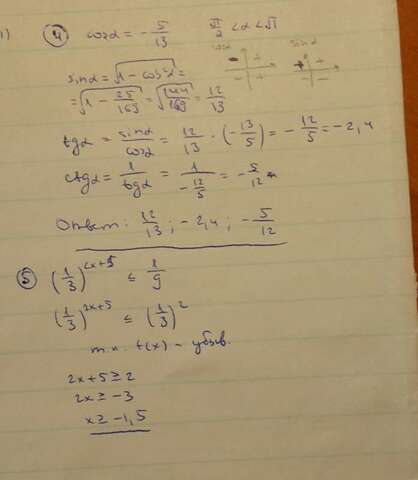 ④ cosα = -5/13    π/2 < α < π
cosα    sinα
sinα = √(1 - cos²α) =
= √(1 - 25/169) = √(144/169) = 12/13
tgα = sinα/cosα = 12/13 · (-13/5) = -12/5 = -2,4
ctgα = 1/tgα = 1/(-12/5) = -5/12
Ответ: 12/13; -2,4; -5/12
⑤ (1/3)^(2x+5) ≤ 1/9
(1/3)^(2x+5) ≤ (1/3)^2
т.к. f(x) - убыв.
2x+5 ≥ 2
2x ≥ -3
x ≥ -1,5